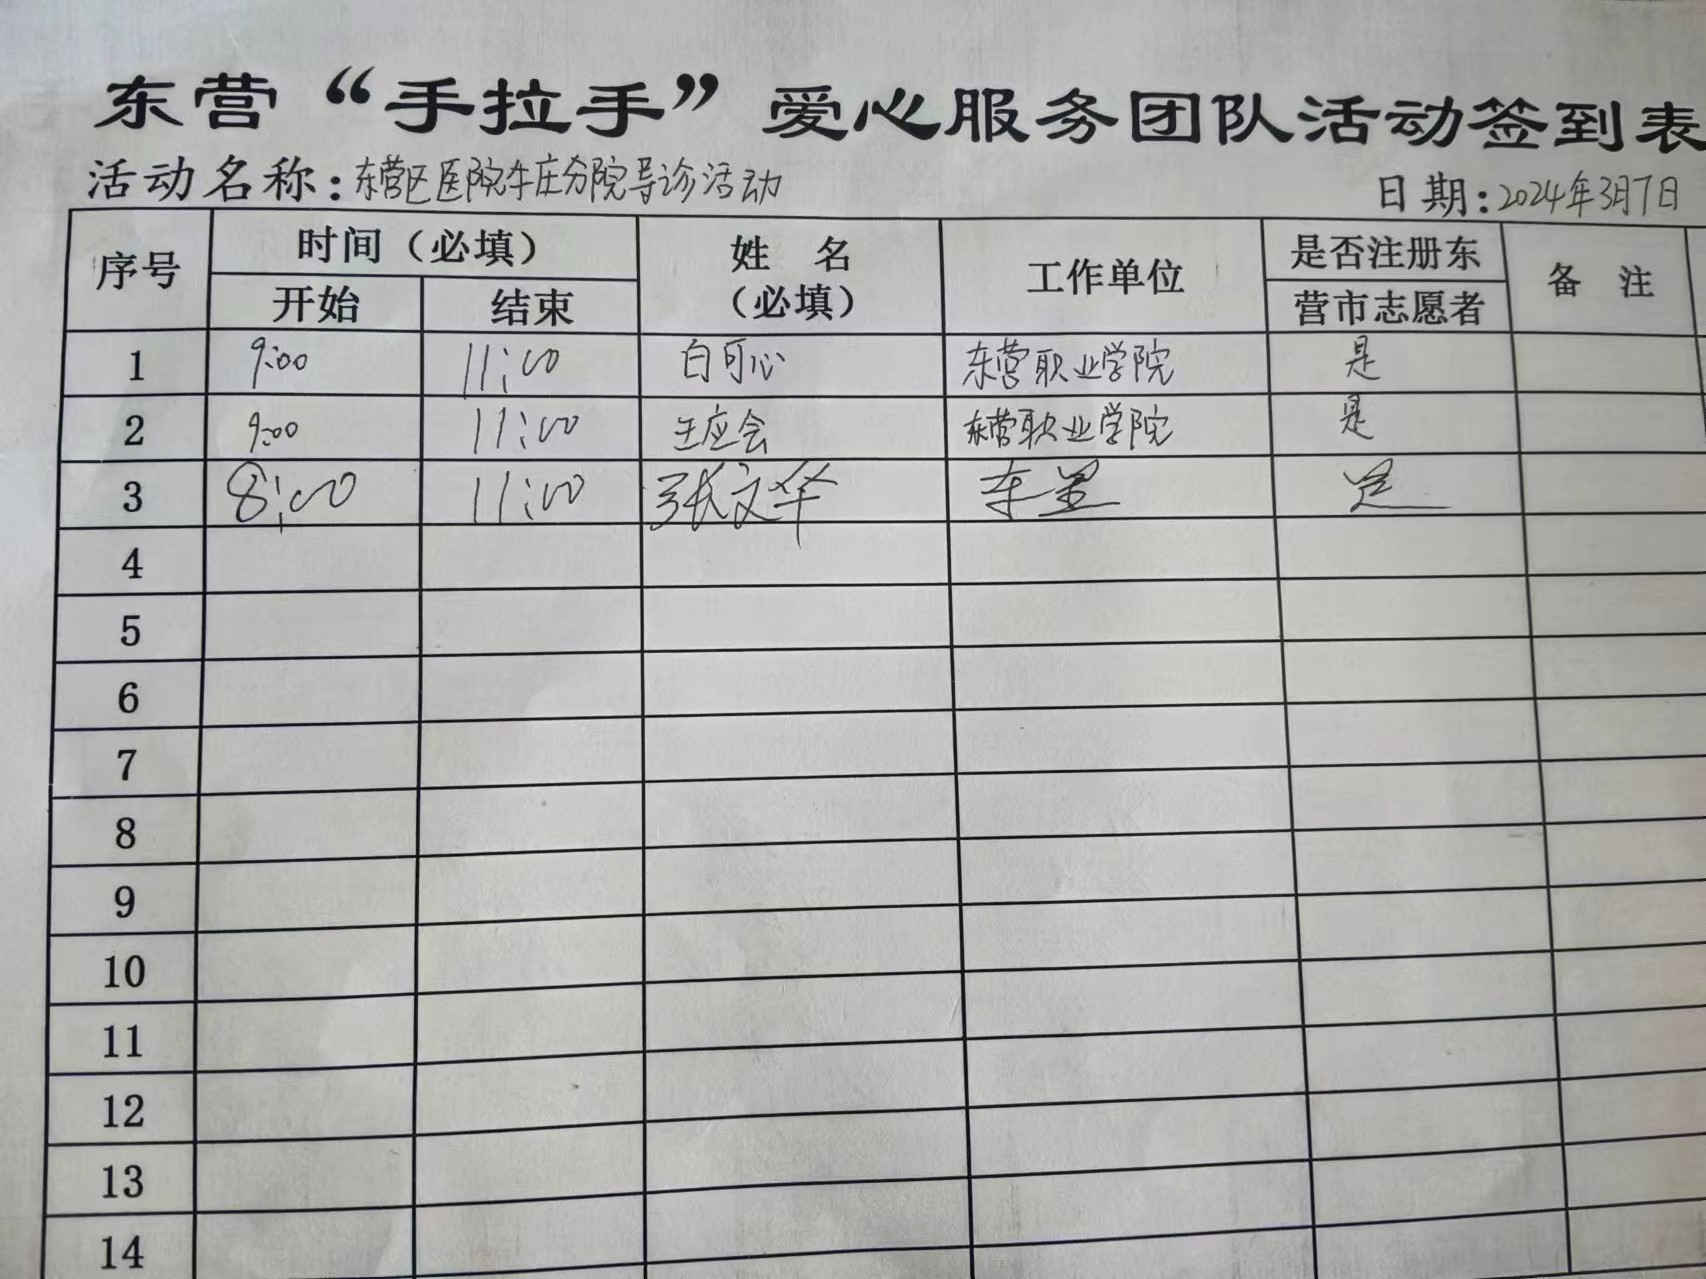 东营“手拉手”爱心服务团队活动签到表
活动名称:东营区医院牛庄分院导诊活动 日期:2024年3月7日
序号 时间(必填) 姓 名(必填) 工作单位 是否注册东营市志愿者 备 注
开始 结束
1 9:00 11:00 白可心 东营职业学院 是
2 9:00 11:00 王应会 东营职业学院 是
3 8:00 11:00 张文华 是
4
5
6
7
8
9
10
11
12
13
14